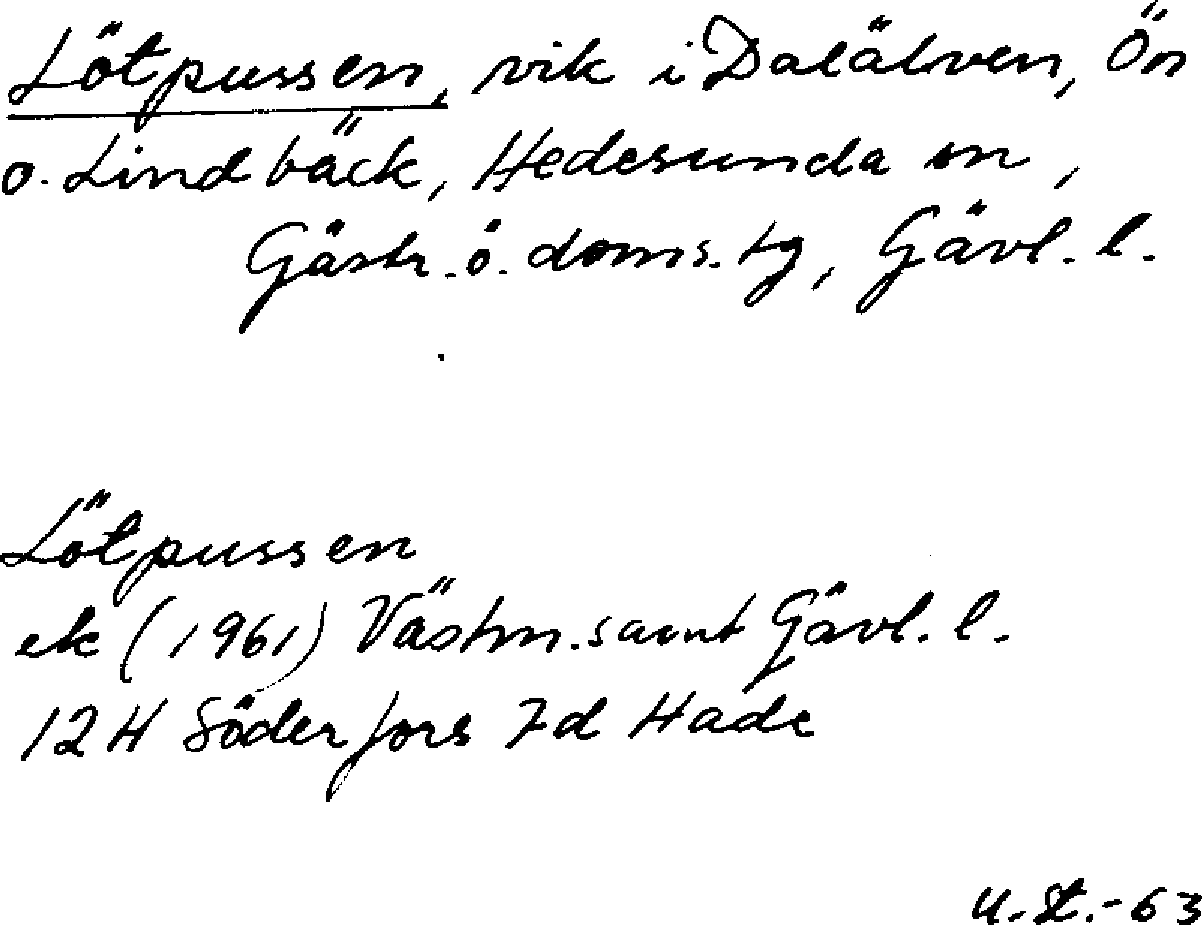 Lötpussen, vik i Dalälven, Ön
o. Lindbäck, Hedesunda sn,
Gästr. ö. doms. tg, Gävl. l.
Lötpussen
ek (1961) Västm. samt Gävl. l.
12H Söderfors 7d Hade
U. St. -63